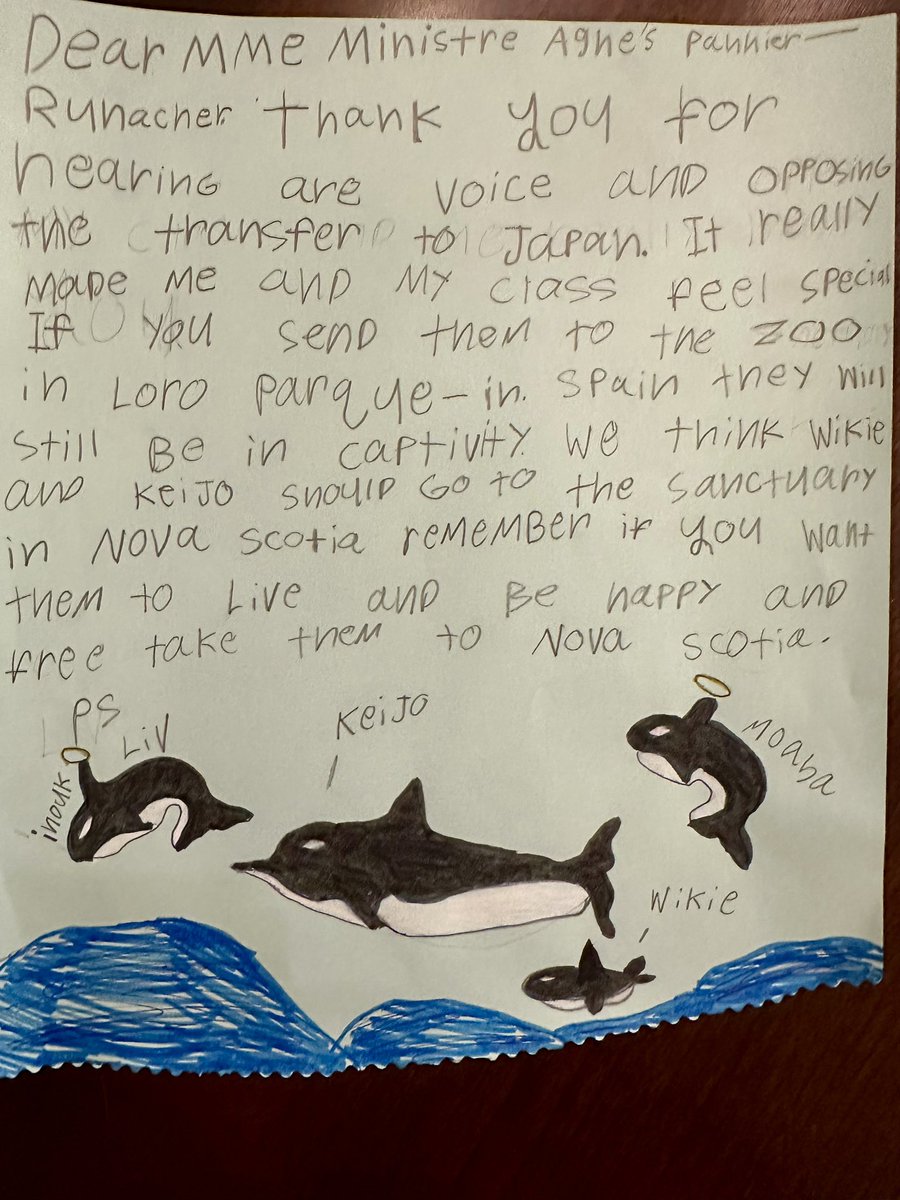 Dear MMe Ministre Agne's Pannier—
Runacher Thank you for
hearing are voice and opposing
the transfer to Japan. It really
made me and my class feel special
If you send them to the zoo
in Loro parque-in. Spain they will
still Be in captivity. we think wikie
and Keijo should go to the sanctuary
in Nova scotia remember if you want
them to Live and Be happy and
free take them to Nova scotia.
PS
Liv
Keijo
Moana
inouk
Wikie